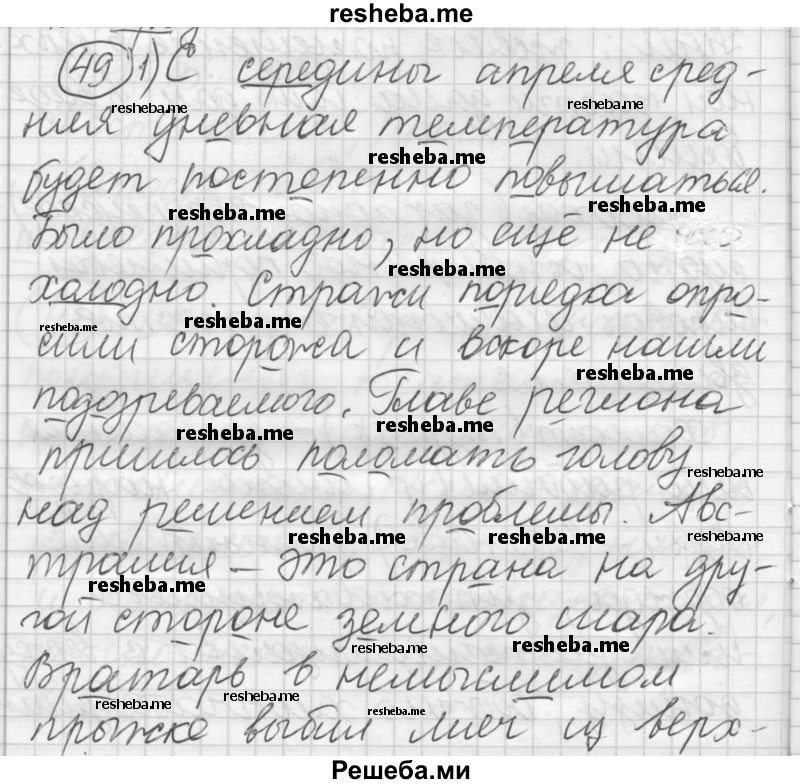 resheba.me
49 1) С середины апреля сред-
resheba.me resheba.me
няя дневная температура
resheba.me
будет постепенно повышаться.
resheba.me resheba.me
Было прохладно, но ещё не
resheba.me
холодно. Стражи порядка опро-
resheba.me resheba.me
сили сторожа и вскоре нашли
resheba.me
подозреваемого. Главе региона
resheba.me resheba.me
пришлось поломать голову
resheba.me
над решением проблемы. Авс-
resheba.me resheba.me resheba.me
тралия – это страна на дру-
resheba.me
гой стороне земного шара.
resheba.me resheba.me
Вратарь в немыслимом
resheba.me resheba.me resheba.me
прыжке выбил мяч из верх-
Решеба.ми